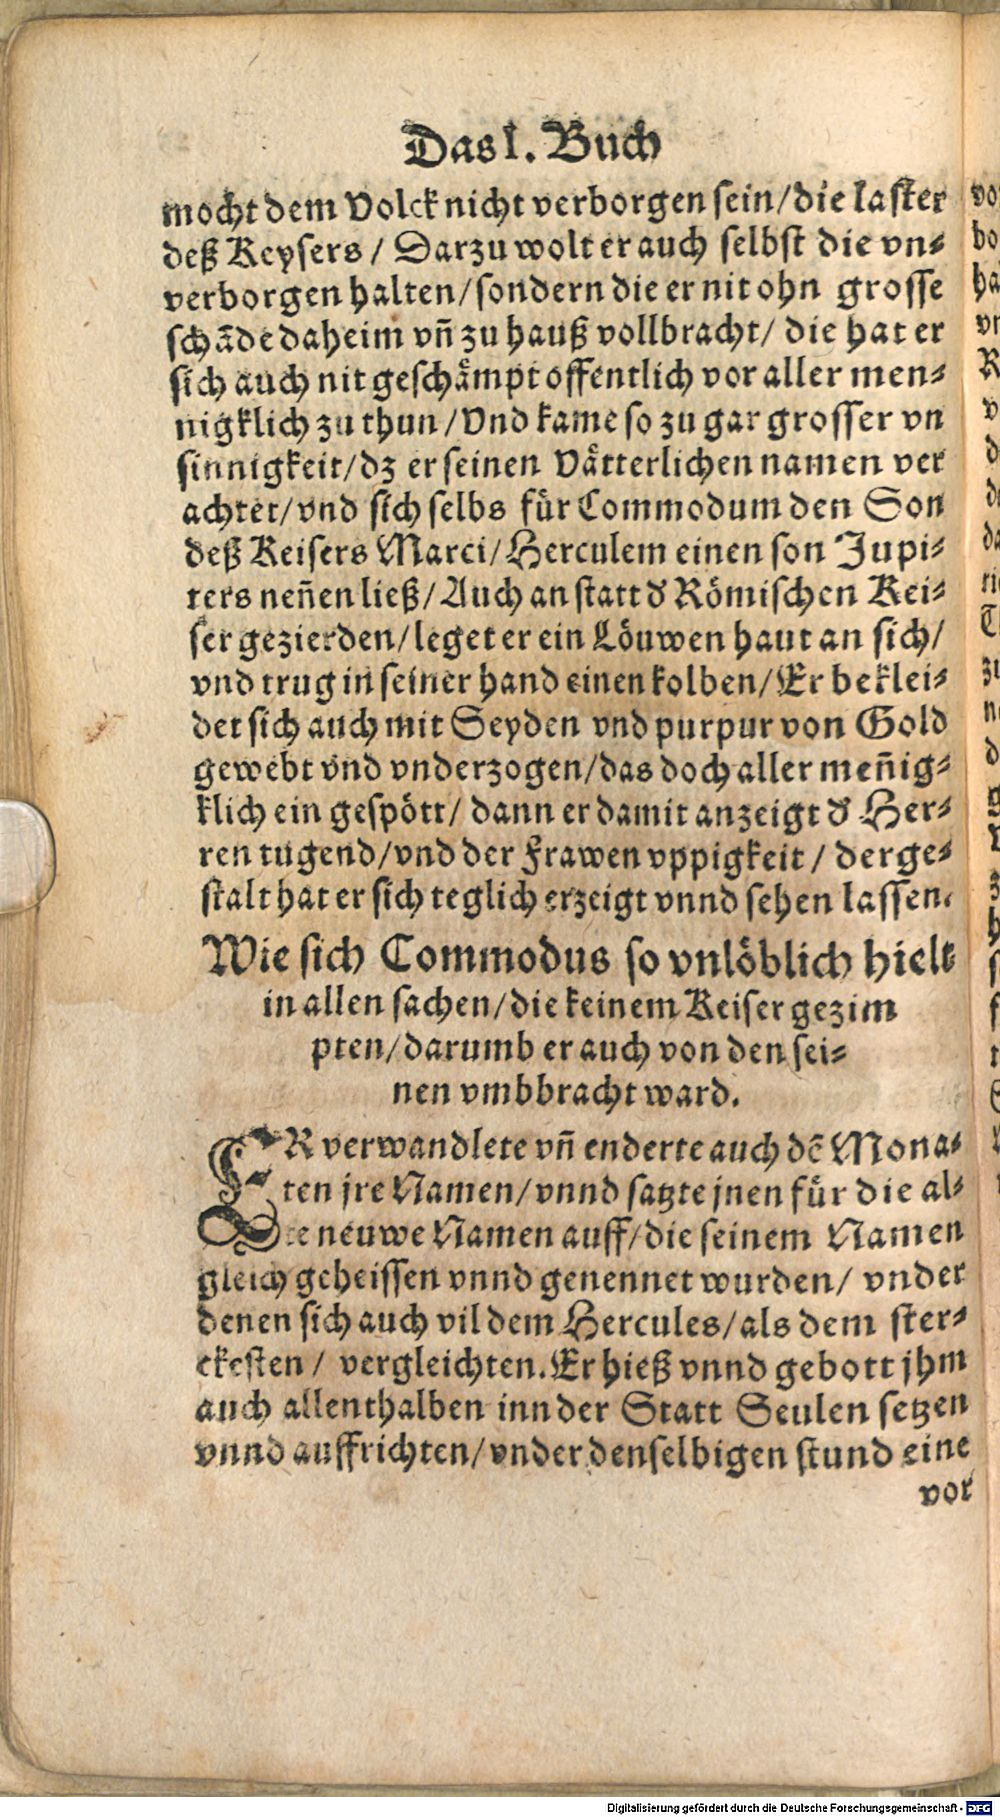 Das I. Buch
mocht dem Volck nicht verborgen sein/die laster
deß Keysers / Darzu wolt er auch selbst die vn⸗
verborgen halten/sondern die er nit ohn grosse
schãde daheim vñ zu hauß vollbracht/ die hat er
sich auch nit geschämpt offentlich vor aller men⸗
nigklich zu thun/Vnd kame so zu gar grosser vn
sinnigkeit/dz er seinen Vätterlichen namen ver
achtet/vnd sich selbs für Commodum den Son
deß Keisers Marci/Herculem einen son Jupi⸗
ters neñen ließ/Auch an statt d̕ Römischen Kei⸗
ser gezierden/leget er ein Löuwen haut an sich/
vnd trug in seiner hand einen kolben/Er beklei⸗
det sich auch mit Seyden vnd purpur von Gold
gewebt vnd vnderzogen/das doch aller meñig⸗
klich ein gespött/ dann er damit anzeigt d̕ Her⸗
ren tugend/vnd der Frawen vppigkeit / derge⸗
stalt hat er sich teglich erzeigt vnnd sehen lassen.
Wie sich Commodus so vnlöblich hielt
in allen sachen/die keinem Keiser gezim
pten/darumb er auch von den sei⸗
nen vmbbracht ward.
ER verwandlete vñ enderte auch dẽ Mona⸗
ten jre Namen/vnnd satzte jnen für die al⸗
te neuwe Namen auff/die seinem Namen
gleich geheissen vnnd genennet wurden/ vnder
denen sich auch vil dem Hercules/als dem ster⸗
ckesten / vergleichten.Er hieß vnnd gebott jhm
auch allenthalben inn der Statt Seulen setzen
vnnd auffrichten/vnder denselbigen stund eine
vor
Digitalisierung gefördert durch die Deutsche Forschungsgemeinschaft - DFG